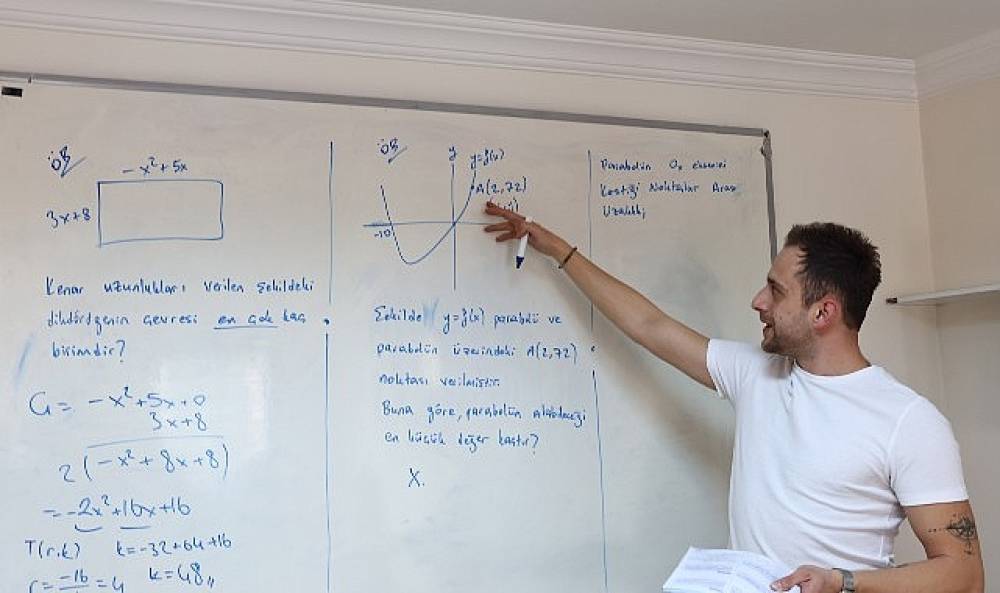 ÖR
-x²+5x
3x+8
Kenar uzunlukları verilen şekildeki
dikdörtgenin çevresi en çok kaç
birimdir?
Ç= -x²+5x+0
3x+8
2(-x²+8x+8)
=-2x²+16x+16
T(r,k) k=-32+64+16
r=-16 =4 k=48,,
ÖR
y y=f(x)
A(2,72)
-10
Şekilde y=f(x) parabolü ve
parabolün üzerindeki A(2,72)
noktası verilmiştir.
Buna göre, parabolün alabileceği
en küçük değer kaçtır?
X.
Parabolün Ox eksenini
Kestiği Noktalar Arası
Uzaklık;